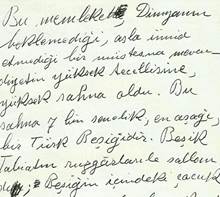 Bu memleket, Dünyanın
beklemediği, asla ümid
etmediği bir müstesna mevcu-
diyetin yüksek tecellisine,
yüksek sahna oldu. Bu
sahna 7 bin senelik, en aşağı,
bir Türk Beşiğidir. Beşik
Tabiatın rüzgârlarile sallan-
dı, Beşiğin içindeki çocuk